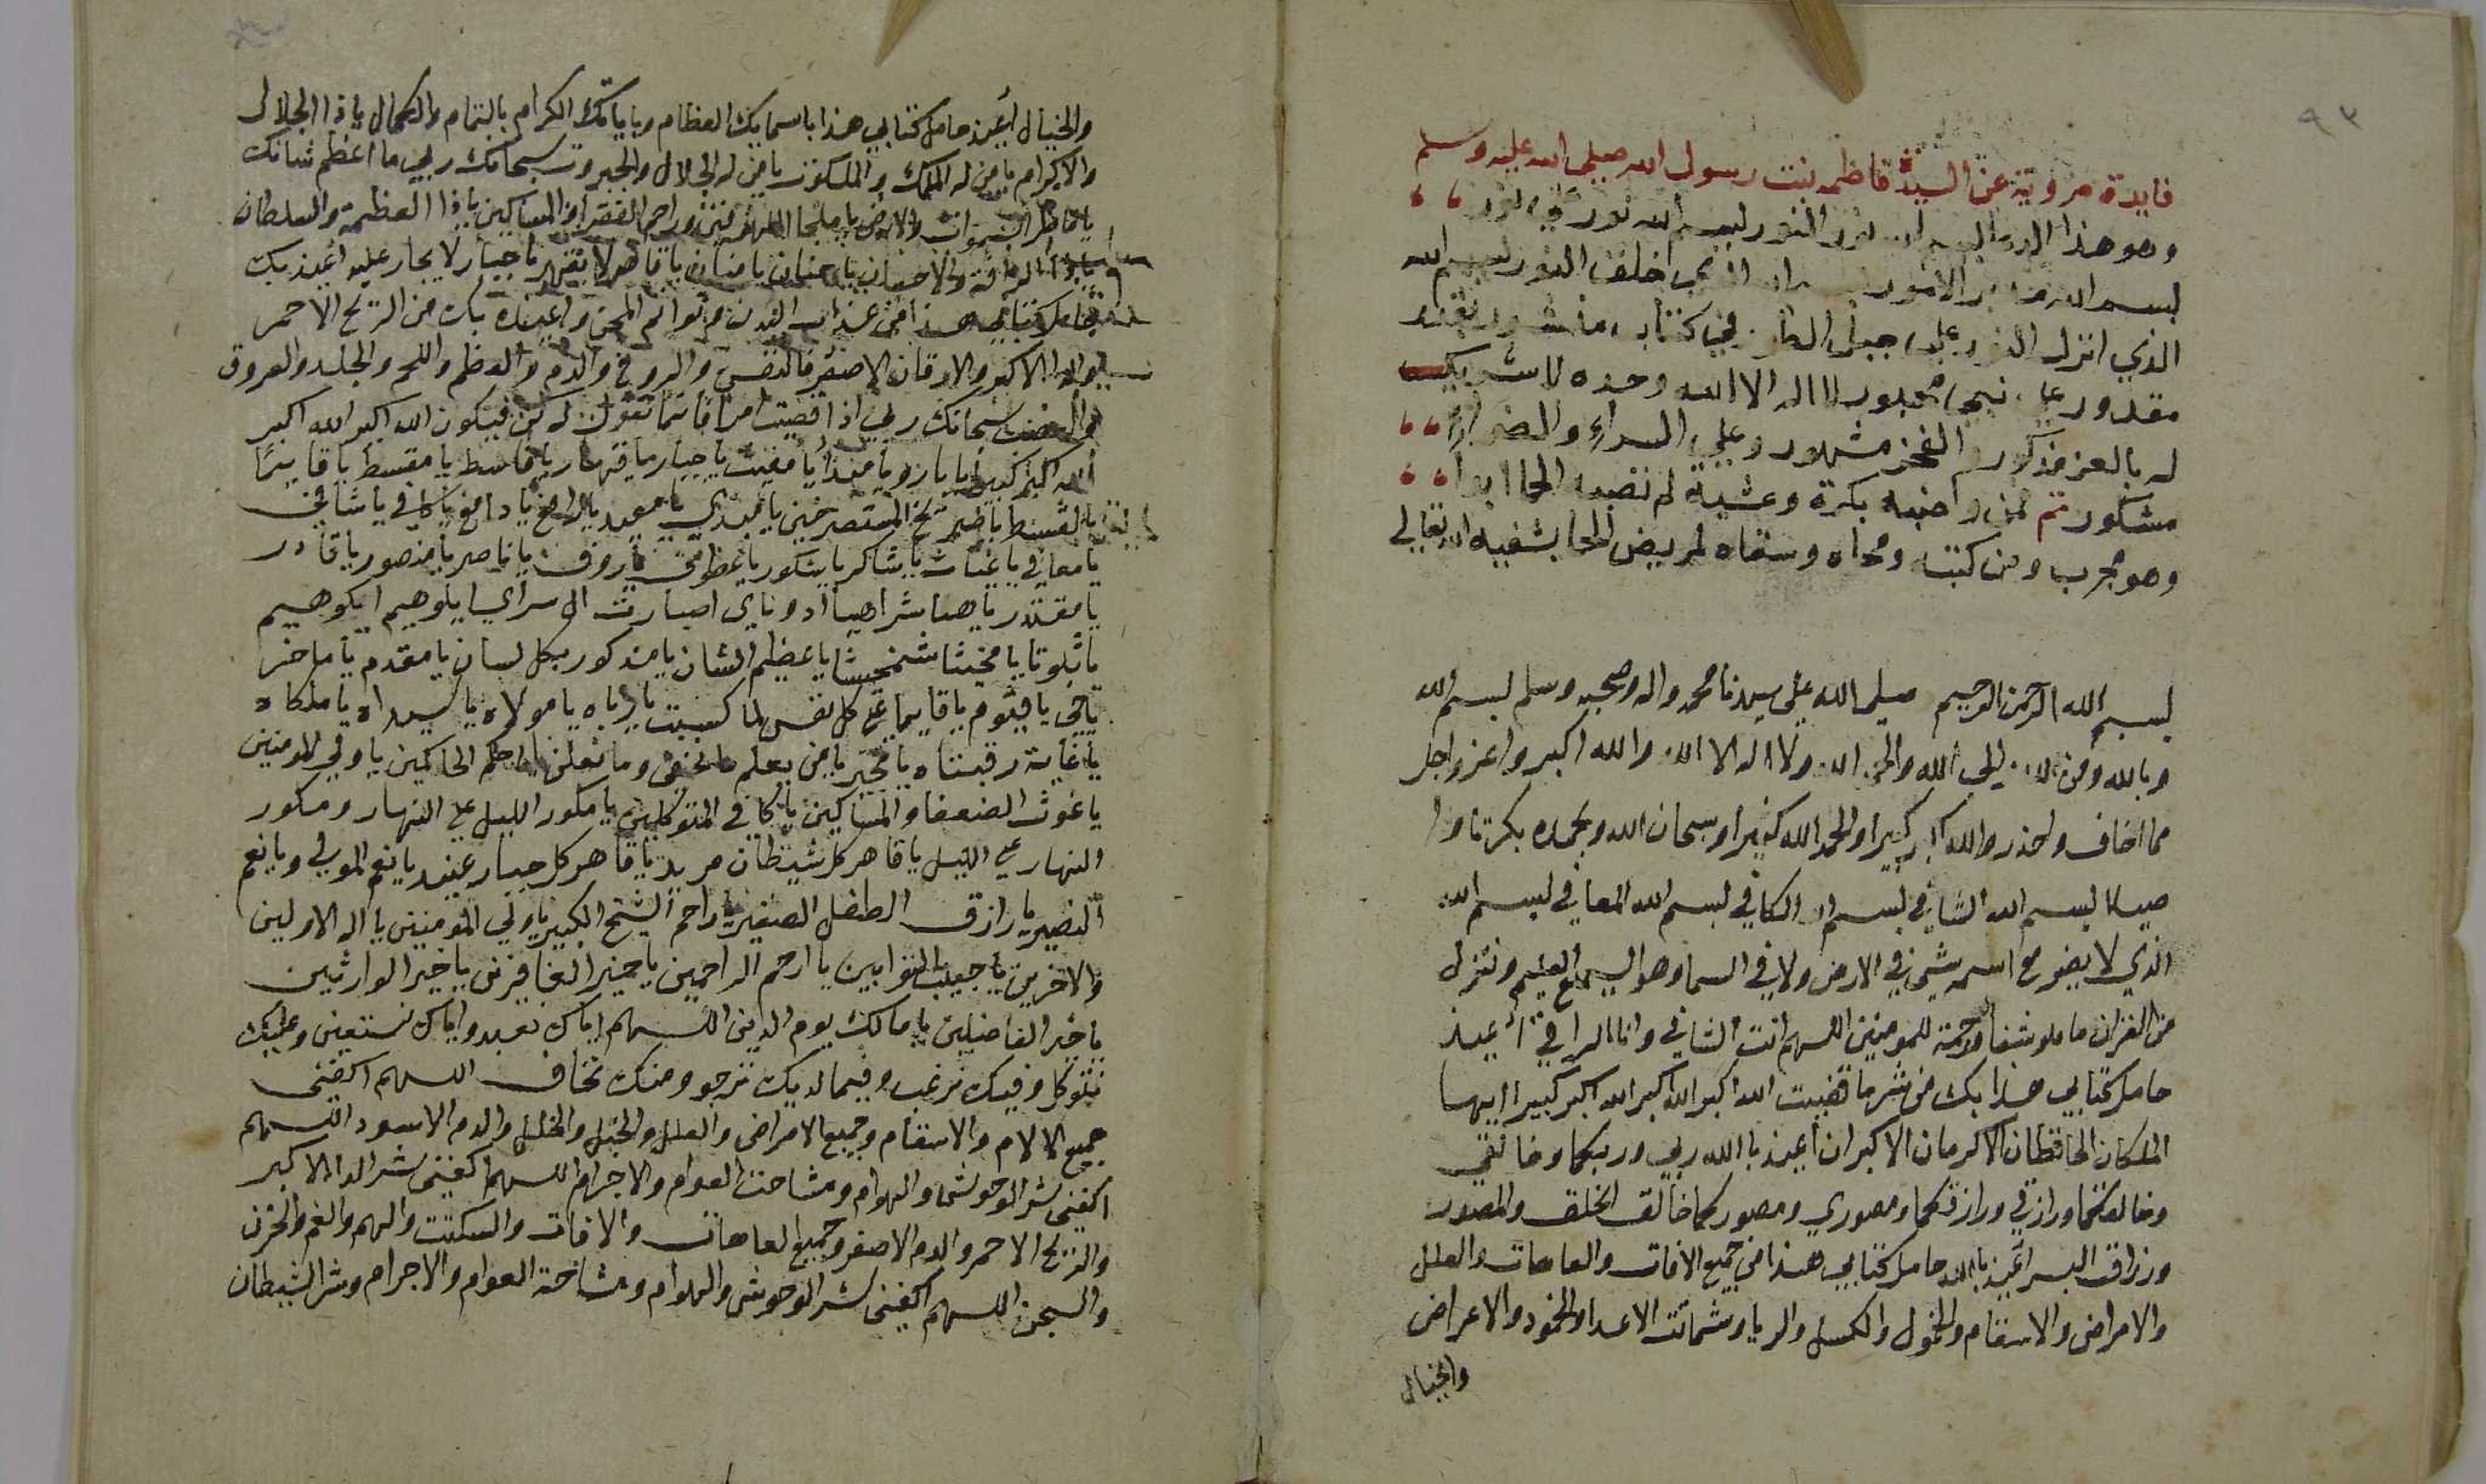 ٩٣
فايدة مروية عن السيدة فاطمه بنت رسول الله صلى الله عليه وسلم
وهو هذا الدعا بسم الله نور النور بسم الله نور على نور
بسم الله مدبر الامور بسم الله الذي اخلق النور بسم الله
الذي انزل النور على جبل الطور في كتاب منشور بقدر
مقدور على نبي محبور لا اله الا الله وحده لا شريك
له بالعز مذكور والفخر مشهور وعلى السراء والضراء
مشكور تم فمن واضبه بكرة وعشية لم تصبه الحما ابدا
وهو مجرب ومن كتبه ومحاه وسقاه لمريض الحما يشفيه الله تعالى
بسم الله الرحمن الرحيم صلى الله على سيدنا محمد واله وصحبه وسلم بسم الله
وبالله ومن الله الى الله والحمد لله ولا اله الا الله والله اكبر واعز واجل
مما اخاف واحذر والله اكبر كبيرا والحمد لله كثيرا وسبحان الله وبحمده بكرتا وا
صيلا بسم الله الشافي بسم الله الكافي بسم الله المعافي بسم الله
الذي لا يضر مع اسمه شيئ في الارض ولا في السما وهو السميع العليم وننزل
من القران ما هو شفا ورحمة للمومنين اللهم انت الشافي وانا الراقي أعيذ
حامل كتابي هذا بك من شر ما قضيت الله اكبر الله اكبر الله اكبر كبيرا ايها
الملكان الحافظان الاكرمان الاكبران أعيذ بالله ربي وربكما وخالقي
وخالقكما ورازقي ورازقكما ومصوري ومصوركما خالق الخلق والمصور
ورزاق البسر أعيذ بالله حامل كتابي هذا من جميع الافات والعاهات والعلل
والامراض والاسقام والخمول والكسل والريا وشماتت الاعدا والخمود والاعراض
والخبال
والخبال أعيذ حامل كتابي هذا باسمايك العظام وباياتك الكرام بالتمام والكمال ياذا الجلال
والاكرام يامن له الملك والملكوت يامن له الجلال والجبروت سبحانك ربي ما اعظم شانك
يافاطر السموات والارض يا ملجا اللهوفين وراحم الفقرا والمساكين ياذا العظمة والسلطان
ياذا الرافة والاحسان يا حنان يا منان يا قاهر لا يقهر يا جبار لا يجار عليه أعيذ بك
حامل كتابي هذا من عذاب القبر وأعيذه بك من الريح الاحمر
والدا الاكبر في النفس والروح والدم والعظم واللحم والجلد والعروق
والعصب سبحانك ربي اذا قضيت امرا فانما تقول له كن فيكون الله اكبر الله اكبر
الله اكبر كبيرا يا بارو يا مغيث يا جبار يا قهار يا قاسط يا مقسط يا قايما
بالقسط يا صريخ المستصرخين يا مبدي يا معيد يا دافع يا كافي يا شافي
يا معافي يا غياث يا شاكر يا شكور يا عطوف يا روف يا ناصر يا منصور يا قادر
يا مقتدر يا هيا شراهيا ادوناي اصباوث ال سراي ايلوهيم ايكوهيم
يا عظيم الشان يا مذكور بكل لسان يا مقدم يا ماخر
يا حي يا قيوم يا قايما على كل نفس بما كسبت يا رباه يا مولاه يا سيداه يا ملكاه
يا غاية رغبتاه يا مجير يامن يعلم ما نخفي وما نعلن يا احكم الحاكمين يا ولي المومنين
يا غوث الضعفا والمساكين يا كافي المتوكلين يا مكور الليل على النهار ومكور
النهار على الليل يا قاهر كل شيطان مريد يا قاهر كل جبار عنيد يا نعم المولى ويا نعم
النصير يا رازق الطفل الصغير يا راحم الشيخ الكبير يا ولي المومنين يا اله الاولين
والاخرين يا حبيب التوابين يا ارحم الراحمين يا خير الغافرين يا خير الوارثين
يا خير الفاصلين يا مالك يوم الدين اللهم اياك نعبد واياك نستعين وعليك
نتوكل وفيك نرغب وفيما لديك نرجو ومنك نخاف اللهم اكفني
جميع الالام والاسقام وجميع الامراض والعلل والخبل والخلل والدم الاسود اللهم
اكفني شر الوحوش والهوام ومشاحنت العوام والاجرام اللهم اكفني شر الدا الاكبر
والريح الاحمر والدم الاصفر وجميع العاهات والافات والسكتت والهم والغم والحزن
والسجن اللهم اكفني شر الوحوش والهوام ومشاحنة العوام والاجرام وشر الشيطان